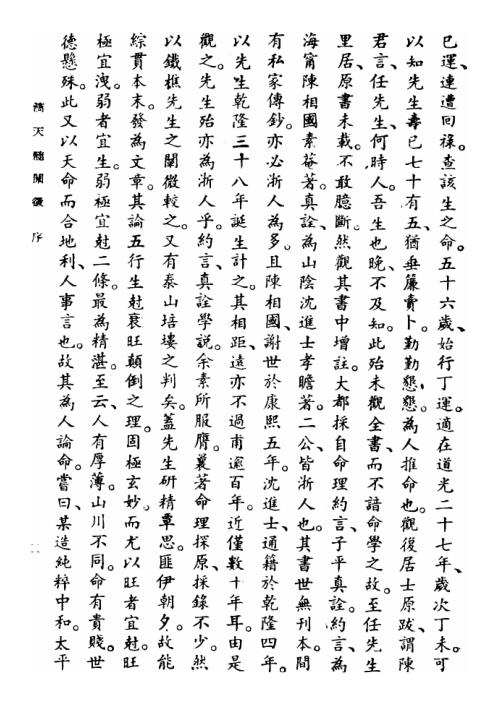 已運、連遭回祿。查該生之命。五十六歲、始行丁運。適在道光二十七年、歲次丁未。可
以知先生壽已七十有五、猶垂簾賣卜。勤勤懇懇、為人推命也。觀復居士原跋、謂陳
君言、任先生、何時人。吾生也晚、不及知。此殆未觀全書、而不諳命學之故。至任先生
里居、原書未載。不敢臆斷。然觀其書中增註。大都採自命理約言、子平真詮。約言、為
海甯陳相國素菴著。真詮、為山陰沈進士孝瞻著。二公、皆浙人也。其書世無刊本。間
有私家傳鈔。亦必浙人為多。且陳相國、謝世於康熙五年。沈進士、通籍於乾隆四年。
以先生乾隆三十八年誕生計之。其相距、遠亦不過甫逾百年。近僅數十年耳。由是
觀之。先生殆亦為浙人乎。約言、真詮學說。余素所服膺。曩著命理探原、採錄不少。然
以鐵樵先生之闡微較之。又有泰山培塿之判矣。蓋先生研精覃思。匪伊朝夕。故能
綜貫本末。發為文章。其論五行生尅衰旺顛倒之理。固極玄妙。而尤以旺者宜尅。旺
極宜洩。弱者宜生。弱極宜尅二條。最為精湛。至云、人有厚薄。山川不同。命有貴賤。世
德懸殊。此又以天命而合地利、人事言也。故其為人論命。嘗曰、某造純粹中和。太平
滴天髓闡微 序